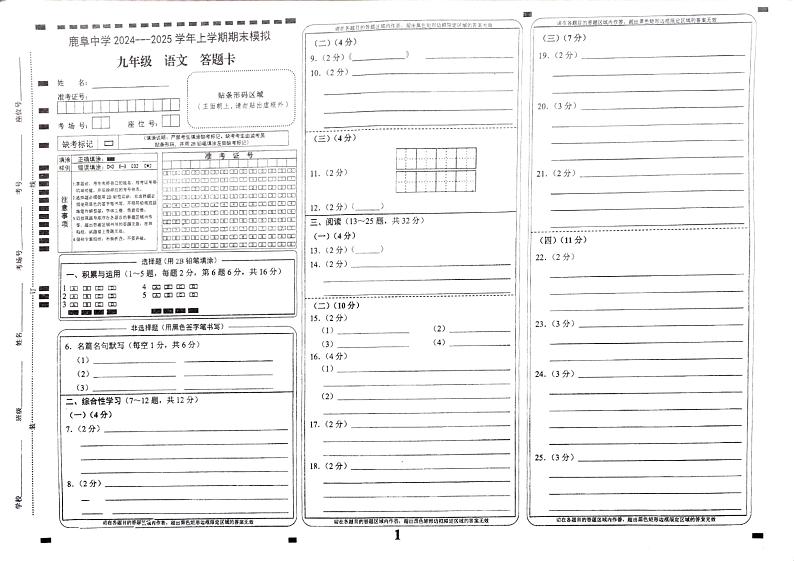 鹿阜中学 2024---2025 学年上学期期末模拟
九年级 语文 答题卡
姓 名：
准考证号：
考 场 号： 座 位 号：
贴条形码区域
（正面朝上，请勿贴出虚框外）
缺考标记
填涂样例 正确填涂：
错误填涂：
准 考 证 号
注意事项
选择题（用 2B 铅笔填涂）
一、积累与运用（1～5 题，每题 2 分，第 6 题 6 分，共 16 分）
1 4
2 5
3
非选择题（用黑色签字笔书写）
6．名篇名句默写（每空 1 分，共 6 分）
（1）
（2）
（3）
二、综合性学习（7～12 题，共 12 分）
（一）（4 分）
7.（2 分）
8.（2 分）
请在各题目的答题区域内作答，超出黑色矩形边框限定区域的答案无效
学校
班级
姓名
考场号
考号
座位号
装
订
线
请在各题目的答题区域内作答，超出黑色矩形边框限定区域的答案无效
（二）（4 分）
9.（2 分）（ ）
10.（2 分）
（三）（4 分）
11.（2 分）
12.（2 分）（ ）
三、阅读（13～25 题，共 32 分）
（一）（4 分）
13.（2 分）（ ）
14.（2 分）
（二）（10 分）
15.（2 分）
（1） （2）
（3） （4）
16.（4 分）
（1）
（2）
17.（2 分）
18.（2 分）
请在各题目的答题区域内作答，超出黑色矩形边框限定区域的答案无效
1
请在各题目的答题区域内作答，超出黑色矩形边框限定区域的答案无效
（三）（7 分）
19.（2 分）
20.（3 分）
21.（2 分）
（四）（11 分）
22.（2 分）
23.（3 分）
24.（3 分）
25.（3 分）
请在各题目的答题区域内作答，超出黑色矩形边框限定区域的答案无效